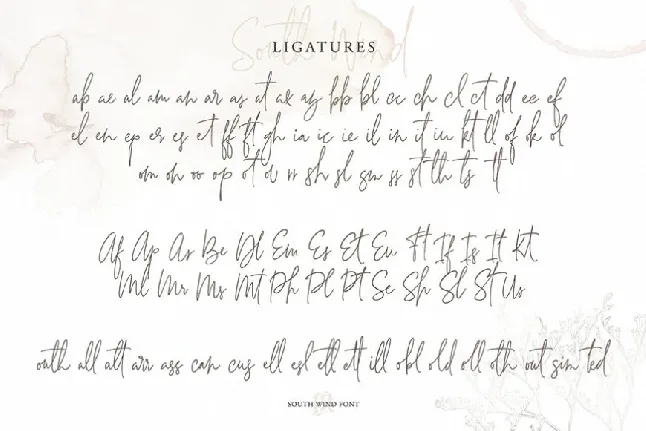 South Wind
LIGATURES
ab ae al am an ar as at ax ay bb bl cc ch cl ct dd ee ef
el en ep er es et ff ft gh ia ic ie il in it iu kt ll of ok ol
om on oo op ot ov rr sh sl sm ss st th ts tt
Af Ap As Be Dl Em Es Et Eu Ft If Is It Kt
Ml Mr Ms Mt Ph Pl Pt Se Sh Sl St Us
outh all alt arr ass can cus ell esl etl ett ill obl old oll oth out sim ted
SOUTH WIND FONT